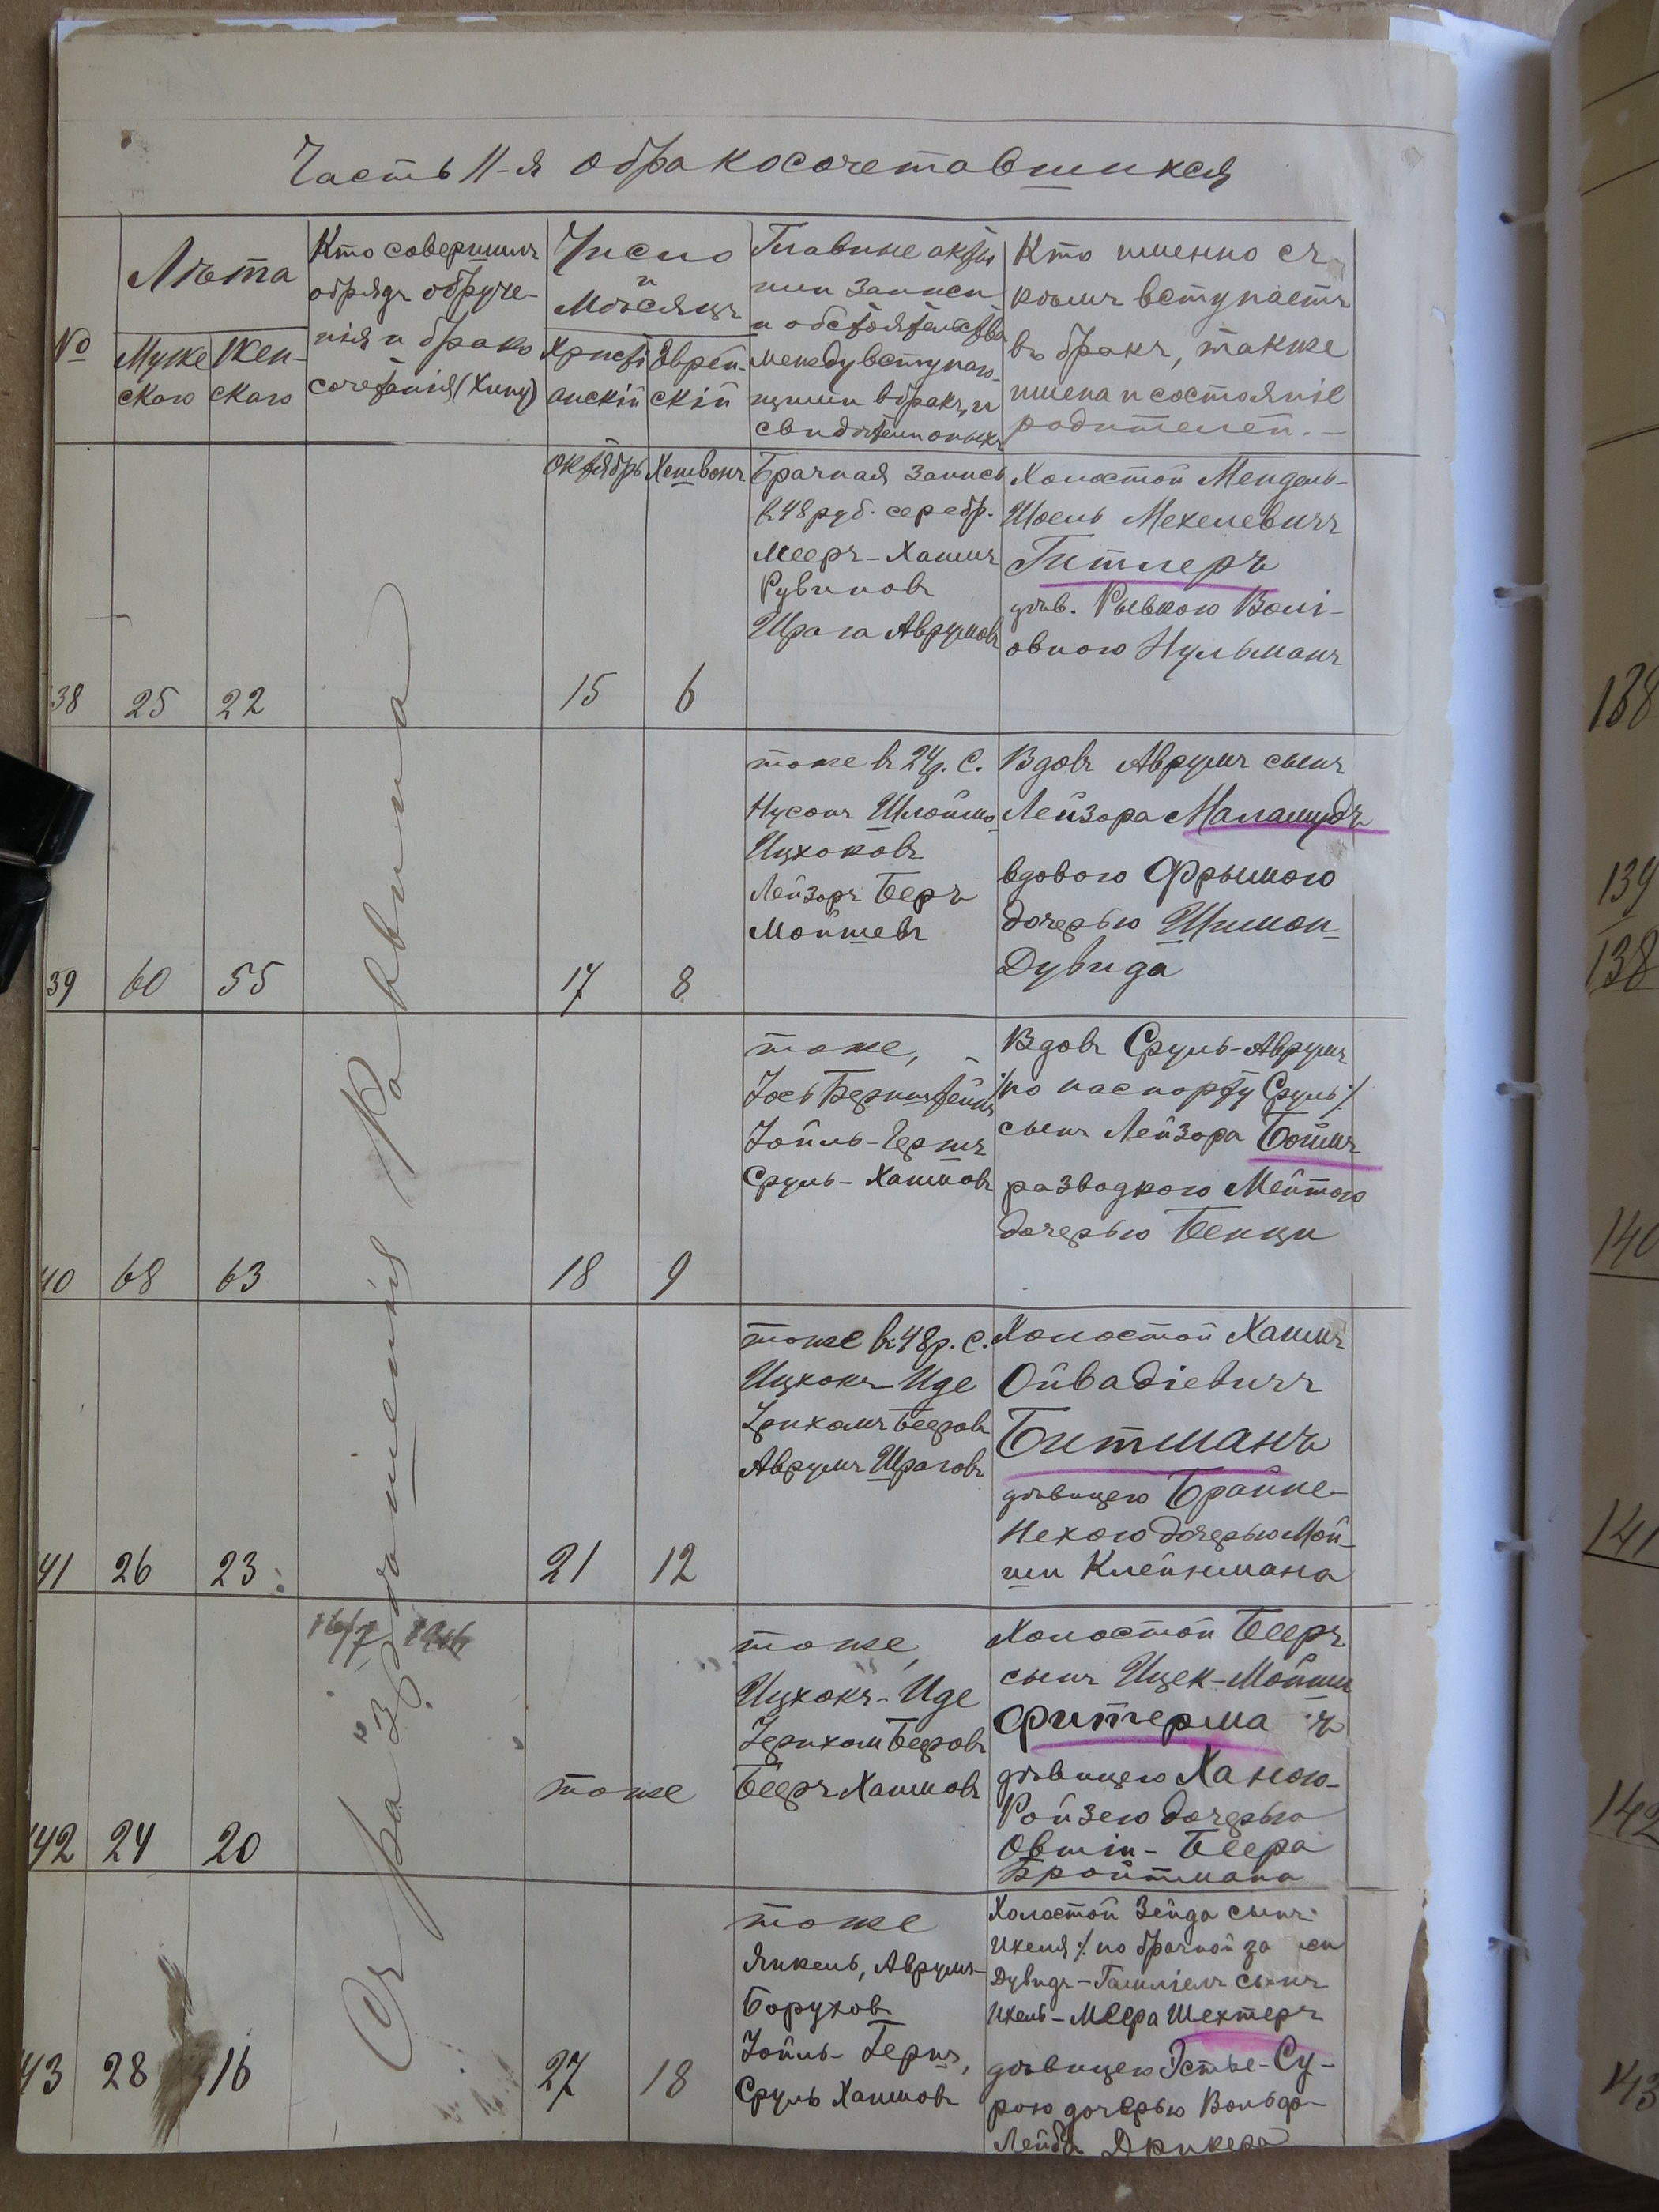 Часть II-я о бракосочетавшихся
№
Лѣта
Муже
скаго
Жен-
скаго
Кто совершилъ
обрядъ обруче-
нія и брако
сочетанія (Хупу)
Число
и
Мѣсяцъ
Христі
анскій
Еврей-
скій
Главные акты
или записи
и обстоятельства
между вступаю-
щими в бракъ, и
свидѣтели оныхъ
Кто именно съ
кѣмъ вступаетъ
въ бракъ, также
имена и состояніе
родителей. —
Съ разрѣшенія Раввина
38
25
22
Октябрь
15
Хешвонъ
6
Брачная запись
в 48 руб. серебр.
Мееръ-Хаимъ
Рувиновъ
Шрага Аврумовъ
Холостой Мендель-
Шоель Мехелевичъ
Гитлеръ
дѣв. Рывкою Волі-
овною Нульманъ
39
60
55
17
8
тоже в 24 р. С.
Нусонъ Шлоймо-
Ицхоковъ
Лейзоръ Беръ
Мойшевъ
Вдовъ Аврумъ сынъ
Лейзора Маламудъ
вдовою Фрымою
дочерью Шимон-
Дувида
40
68
63
18
9
тоже,
Іось Бернштейнъ
Іойль-Гершъ
Сруль-Хаимовъ
Вдовъ Сруль-Аврумъ
/:по паспорту Сруль:/
сынъ Лейзора Боймъ
разводкою Мейтою
дочерью Бенци
41
26
23
21
12
тоже в 48 р. С.
Ицхокъ-Иде
Іерихомъ Беровъ
Аврумъ Шраговъ
Холостой Хаимъ
Ойвадіевичъ
Битманъ
дѣвицею Брайне-
Нехою дочерью Мой-
ши Клейнмана
142
24
20
тоже
тоже,
Ицхокъ-Иде
Іерихом Беровъ
Бееръ Хаимовъ
Холостой Бееръ
сынъ Ицек-Мойши
Фитерма ъ
дѣвицею Ханою-
Ройзею дочерью
Овшія-Беера
Бройтмана
43
28
16
27
18
тоже
Янкель, Аврумъ-
Боруховъ
Іойль-Гершъ,
Сруль Хаимовъ
Холостой Зейда сынъ
Ихеля /: по брачной за си
Дувидъ-Гамліелъ сынъ
Ихель-Меера Шехтеръ
дѣвицею Эстье-Су-
рою дочерью Вольфа-
Лейба Дрикера
138
139
138
140
141
142
143